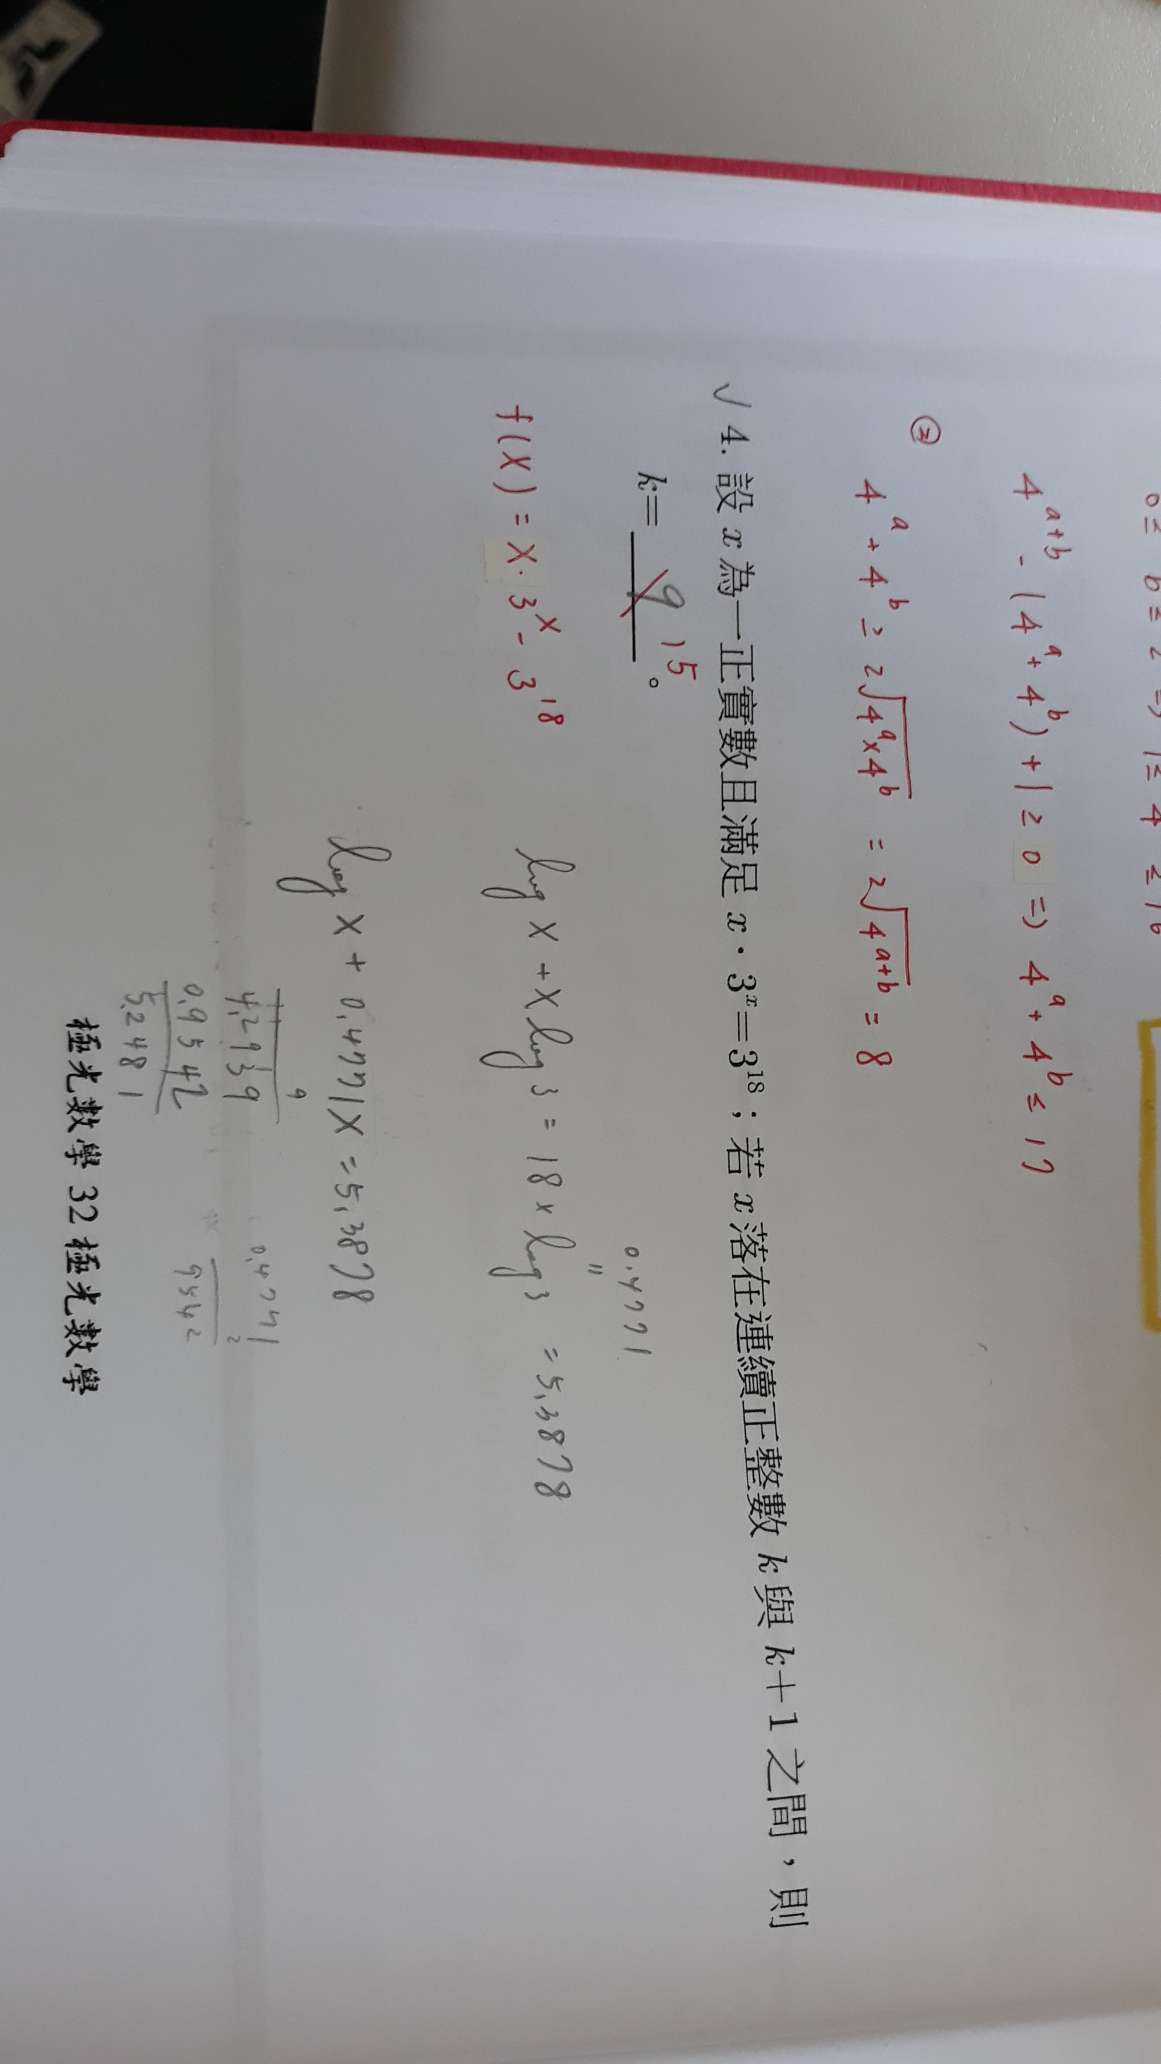 0≤ b≤2 ⇒ 1≤4
4^{a+b} - (4^a + 4^b) + 1 ≥ 0 ⇒ 4^a + 4^b ≤ 17
②
4^a + 4^b ≥ 2√(4^a×4^b) = 2√(4^{a+b}) = 8
√ 4. 設 x 為一正實數且滿足 x · 3^x = 3^18；若 x 落在連續正整數 k 與 k+1 之間，則
k= 9 15 。
0.4771
f(X) = X · 3^X - 3^18
log X + X log 3 = 18 × log 3 = 5.3878
log X + 0.4771X = 5.3878
9
4.2939
0.9542
5.2481
0.4771
2
9542
極光數學 32 極光數學